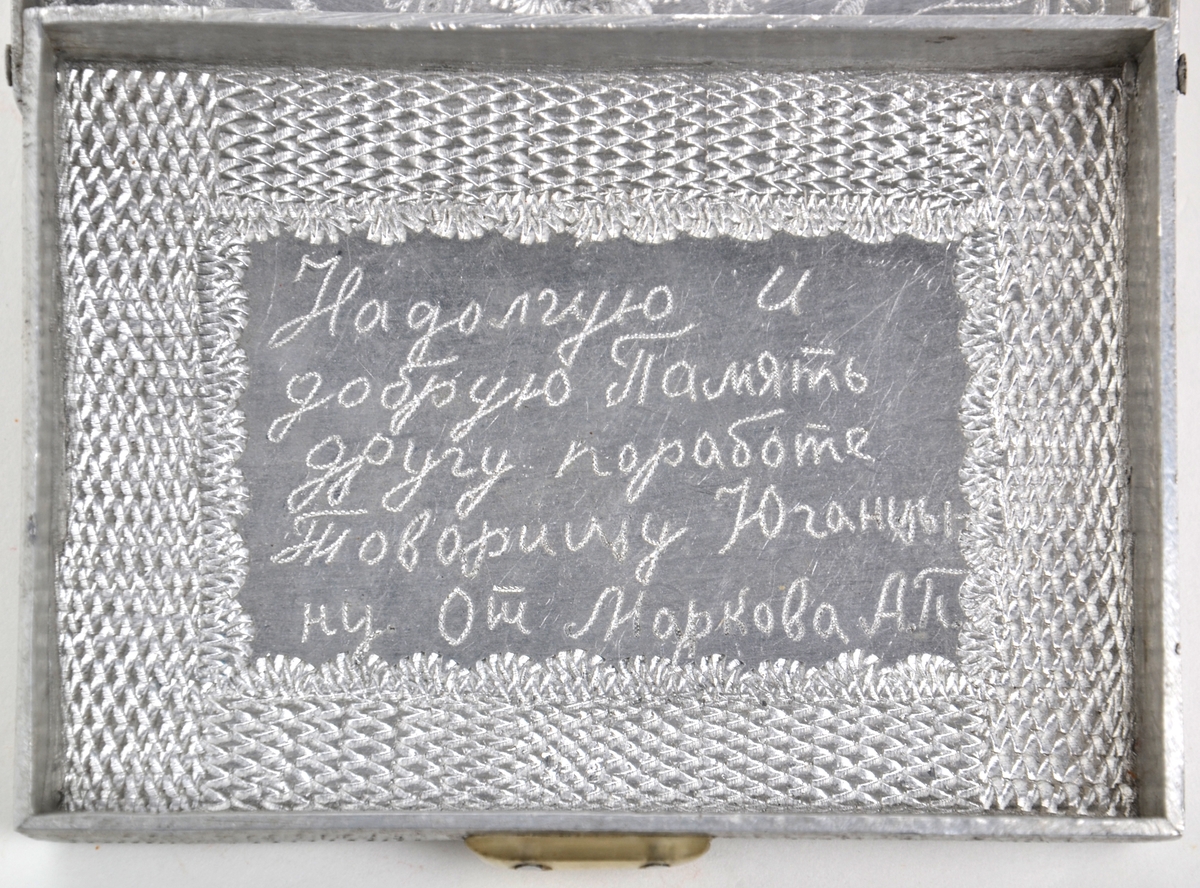 Надолгую и
добрую Память
другу поработе
Товарищу Юганцы-
ну От Маркова АП